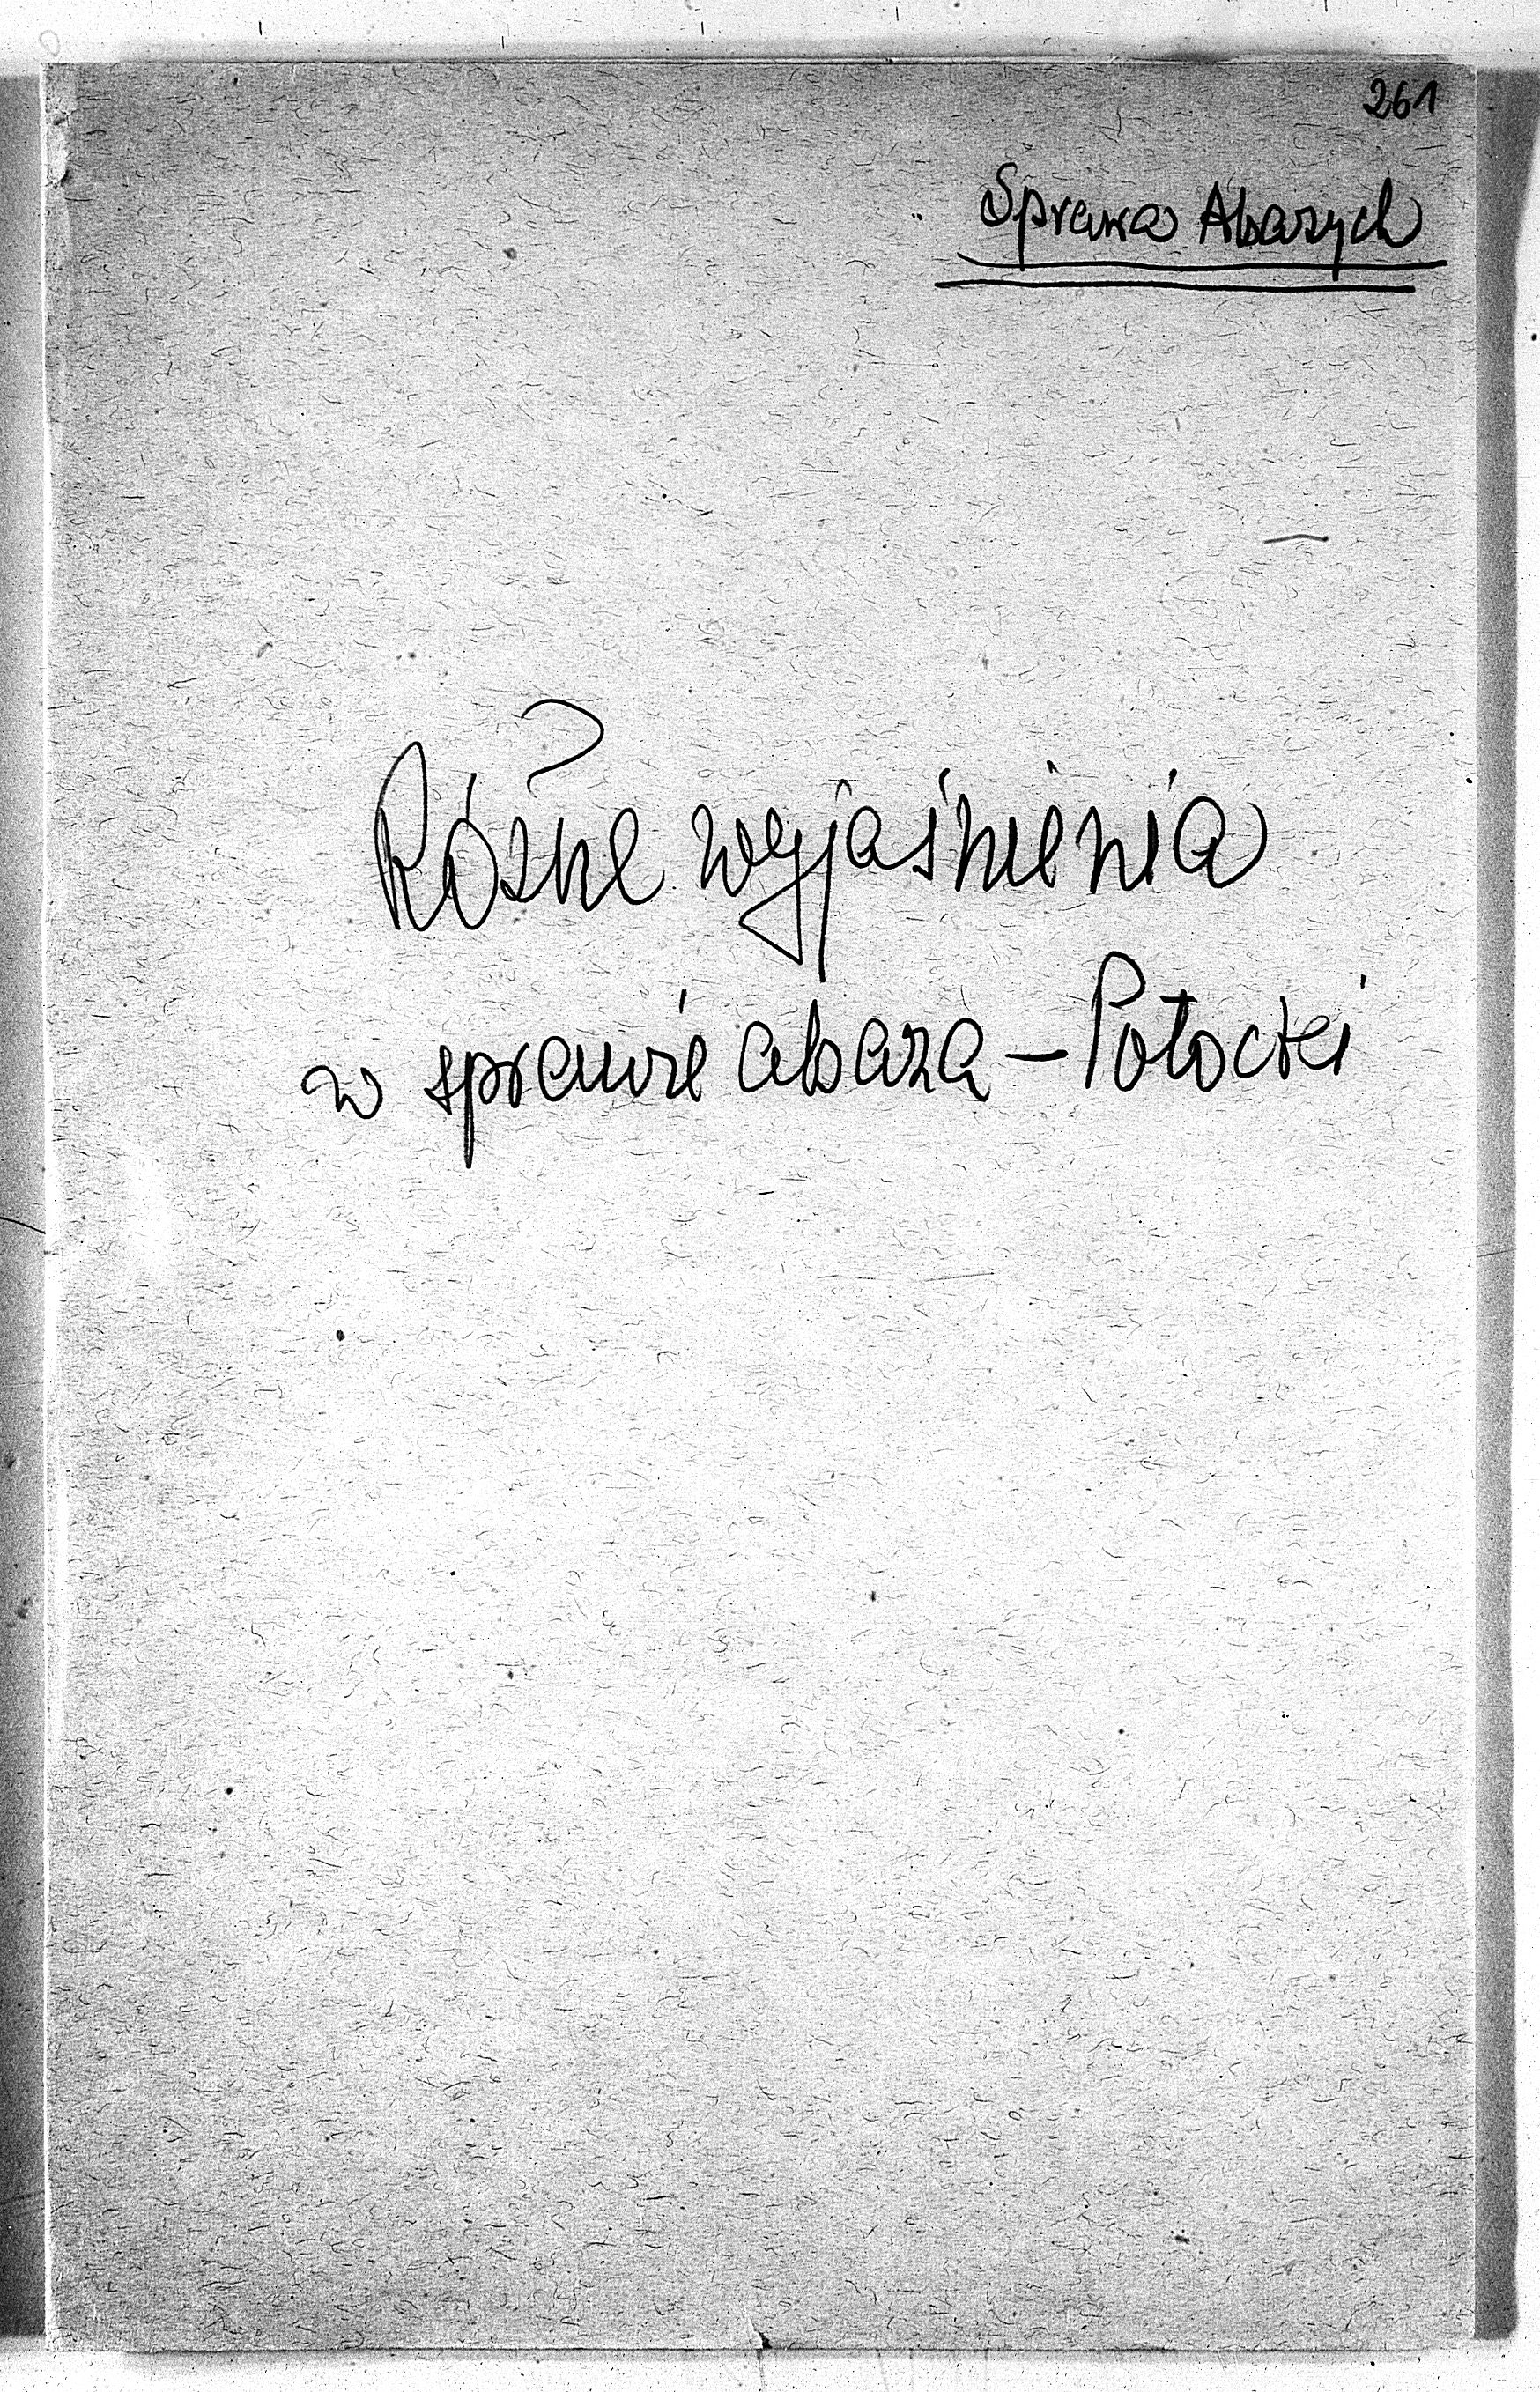 261
Sprawa Abazych
Różne wyjaśnienia
w sprawie abaza – Potocki